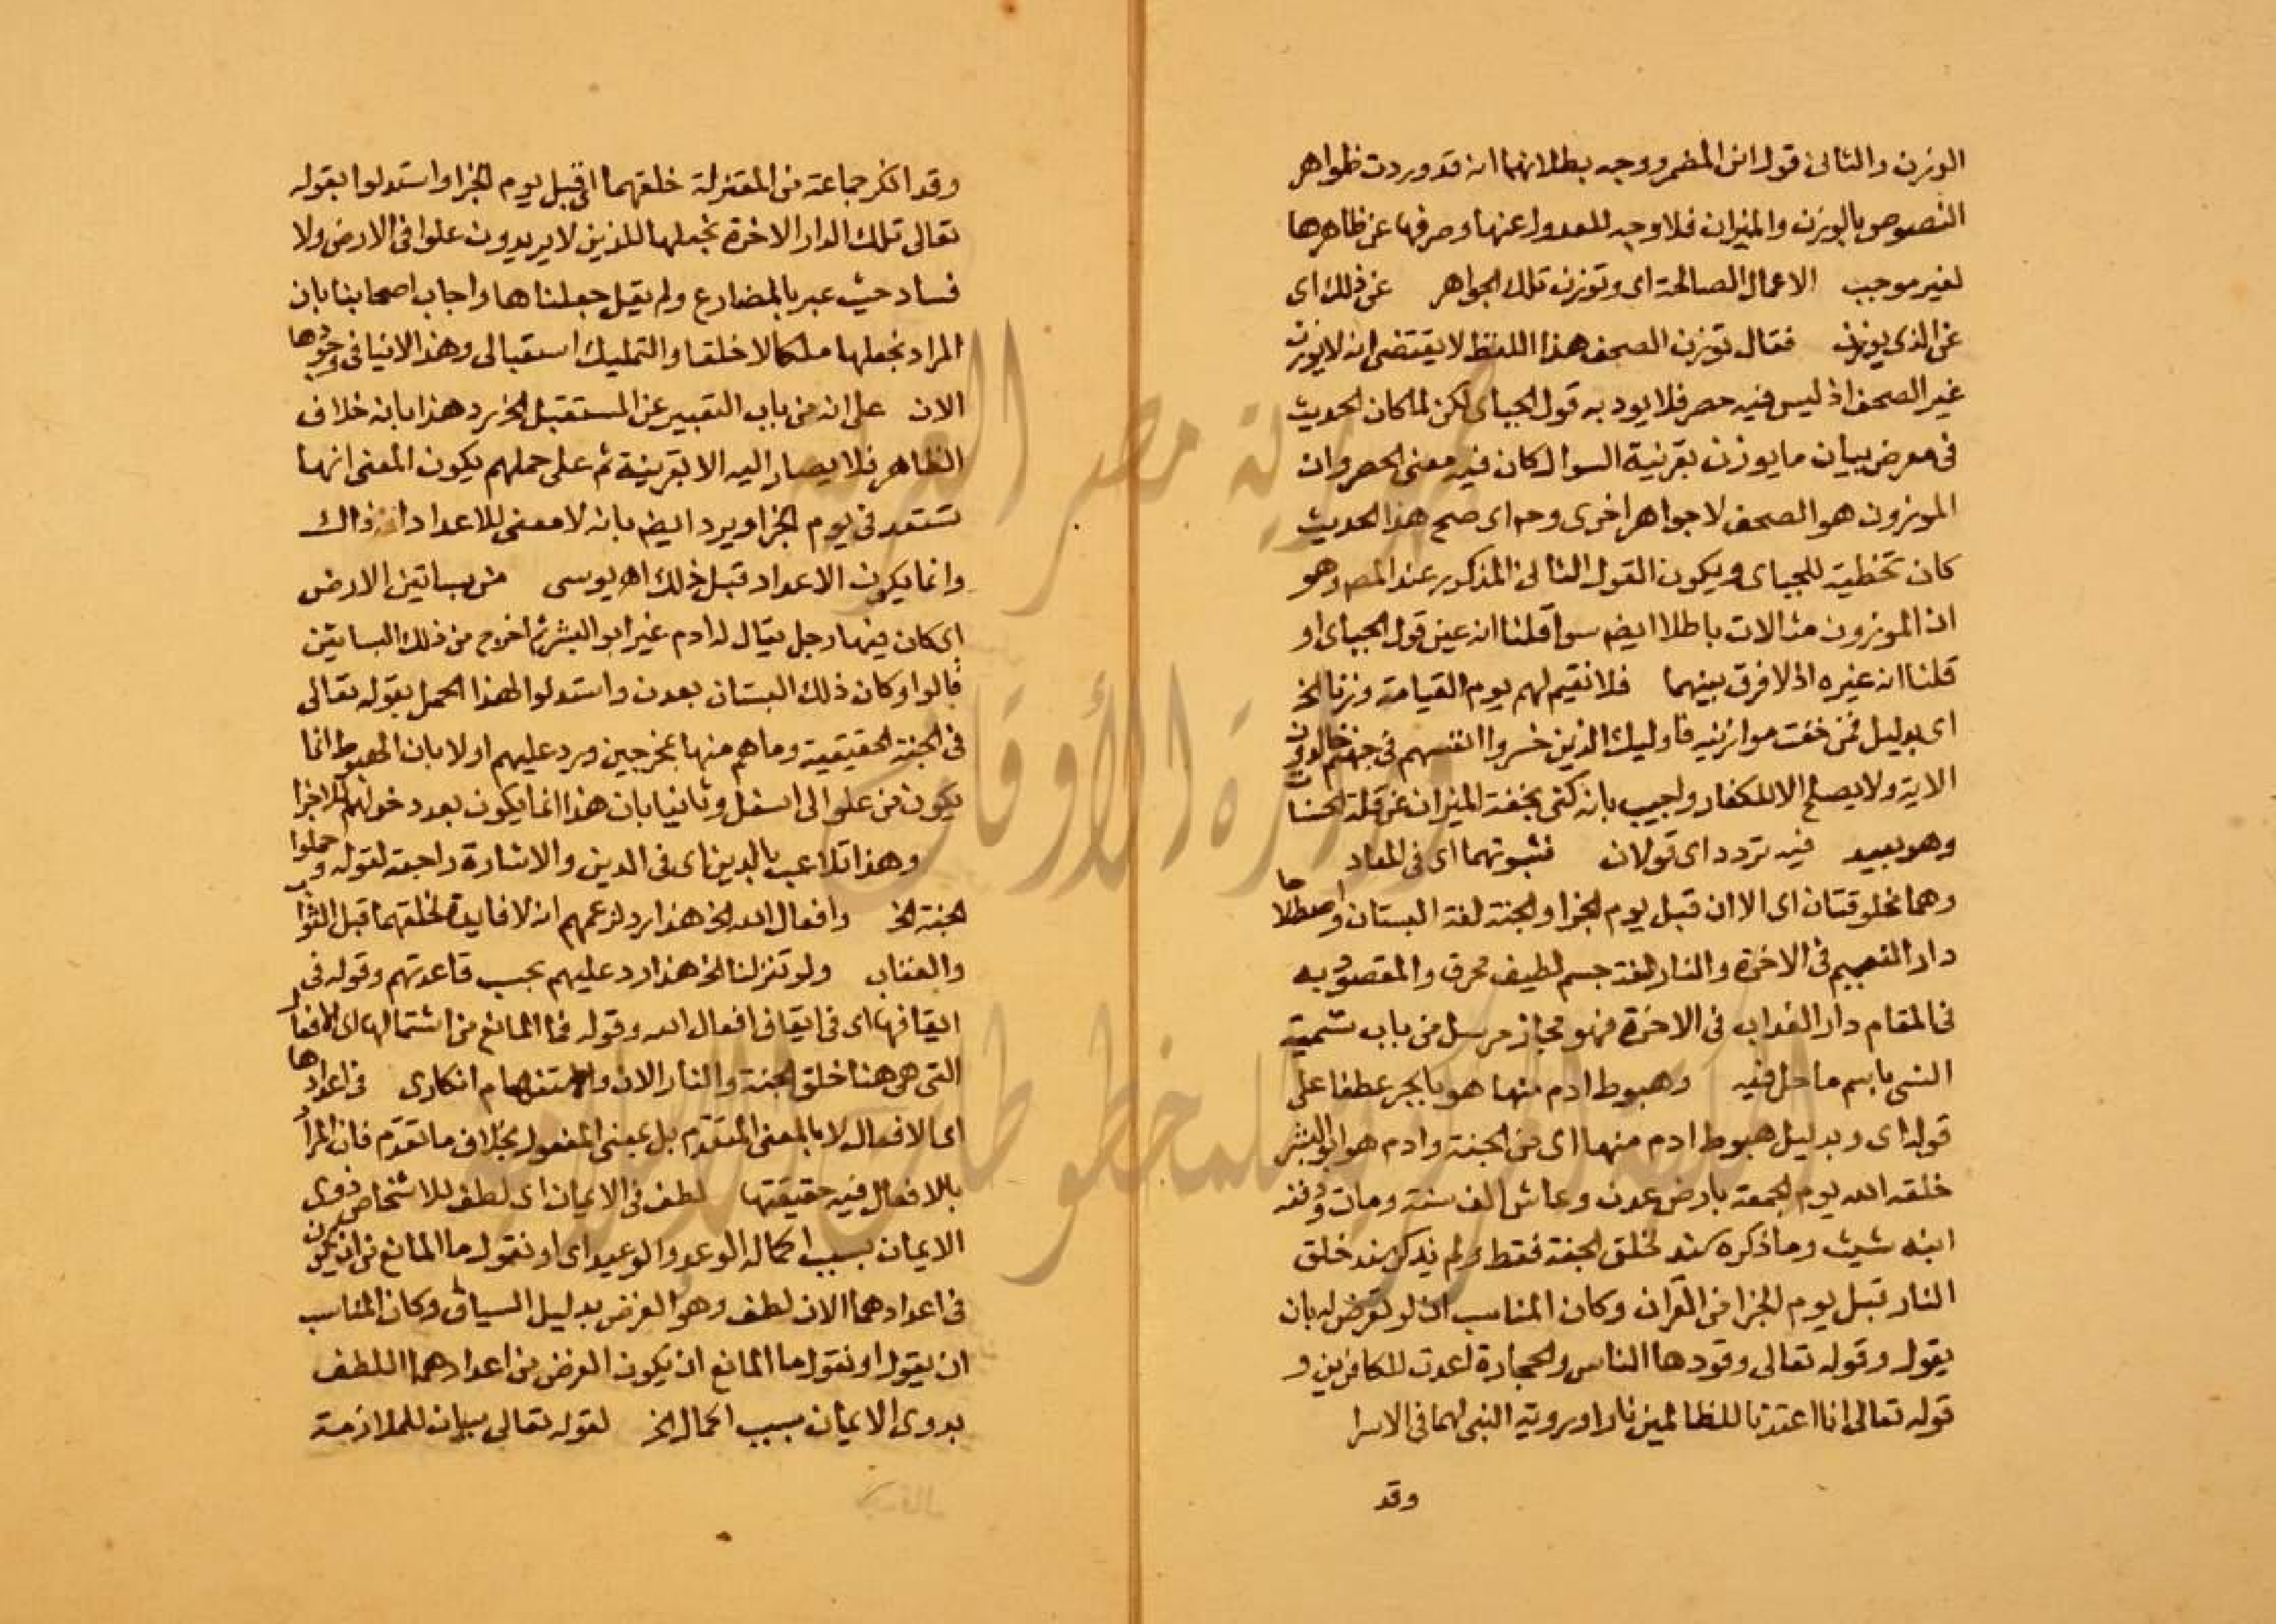 الوزن والثانى قول ابن المعمر ووجه بطلانهما انه قد وردت ظواهر
النصوص بالوزن والميزان فلا وجه للعدول عنها وصرفها عن ظاهرها
لغير موجب الاعمال الصالحة اى وتوزن تلك الجواهر عن ذلك اى
عن الذى يوزن فقال توزن الصحف هذا اللفظ لا يقتضى انه لا يوزن
غير الصحف اذ ليس فيه حصر فلا يرد به قول الجباى لكن لما كان الحديث
فى معرض بيان ما يوزن بقرينة السوال كان فيه معنى الحصر وان
الموزون هو الصحف لا جواهر اخرى وح اى صح هذا الحديث
كان تخطية للجباى ويكون القول الثانى المذكور عند المص وهو
ان الموزون مثالات باطلا ايضم سوا قلنا انه عين قول الجباى او
قلنا انه غيره اذ لا فرق بينهما فلا نقيم لهم يوم القيامة وزنا الخ
اى بدليل فمن خفت موازينه فاوليك الذين خسروا انفسهم فى جهنم خالدون
الاية ولا يصلح الا للكفار واجيب بانه كنى بخفة الميزان عن قلة الحسنات
وهو بعيد فيه تردد اى قولان ثبوتهما اى فى المعاد
وهما مخلوقتان اى الان قبل يوم الجزا والجنة لغة البستان واصطلاحا
دار النعيم فى الاخرة والنار لغة جسم لطيف محرق والمقصود به
فى المقام دار العذاب فى الاخرة فهو مجاز مرسل من باب تسمية
الشى باسم ما حل فيه وهبوط ادم منها هو بالجر عطفا على
قوله اى وبدليل هبوط ادم منها اى من الجنة وادم هو ابو البشر
خلقه الله يوم الجمعة بارض عدن وعاش الف سنة ومات ودفنه
ابنه شيث وما ذكره سند لخلق الجنة فقط ولم يذكر سند خلق
النار قبل يوم الجزا فى القرآن وكان المناسب ان لو تعرض له بان
يقول وقوله تعالى وقودها الناس والحجارة اعدت للكافرين و
قوله تعالى انا اعتدنا للظالمين نارا وبروية النبى لهما فى الاسرا
وقد
وقد انكر جماعة من المعتزلة خلقهما اى قبل يوم الجزا واستدلوا بقوله
تعالى تلك الدار الاخرة نجعلها للذين لا يريدون علوا فى الارض ولا
فسادا حيث عبر بالمضارع ولم يقل جعلناها واجاب اصحابنا بان
المراد نجعلها ملكا لا خلقا والتمليك استقبالى وهذا لا ينافى وجودها
الان على انه من باب التعبير عن المستقبل الخ يرد هذا بانه خلاف
الظاهر فلا يصار اليه الا بقرينة ثم على حملهم يكون المعنى انها
ستعد فى يوم الجزا ويرد ايضم بانه لا معنى للاعداد اذ ذاك
وانما يكون الاعداد قبل ذلك اهـ يوسى من بساتين الارض
اى كان فيها رجل يقال له ادم غير ابو البشر ثم اخرج من ذلك البساتين
قالوا وكان ذلك البستان بعدن واستدلوا لهذا الحمل بقوله تعالى
فى الجنة الحقيقية وما هم منها بمخرجين ورد عليهم اولا بان الهبوط انما
يكون من علو الى اسفل وثانيا بان هذا انما يكون بعد دخولهم للاجزا
وهذا تلاعب بالدين اى فى الدين والاشارة راجعة لقوله وحملوا
الجنة الخ وافعال الله الخ هذا رد لزعمهم انه لا فايدة لخلقهما قبل الثواب
والعقاب ولو تنزلنا الخ هذا رد عليهم بحسب قاعدتهم وقوله فى
ايقافها اى فى ايقاف افعال الله وقوله فما المانع من اشتمالها اى الافعال
التى هى هنا خلق الجنة والنار الان والاستفهام انكارى فى اعدادها
اى الافعال لا بالمعنى المتقدم بل بمعنى المفعول بخلاف ما تقدم فان المراد
بالافعال فيه حقيقتها لطف فى الايمان اى لطف للاشخاص ذوى
الايمان بسبب اكمال الوعد والوعيد اى او نقول ما المانع من ان يكون
فى اعدادهما الان لطف وهو الغرض بدليل السياق وكان المناسب
ان يقول او نقول ما المانع ان يكون الغرض من اعدادهما اللطف
بذوى الايمان بسبب اكمال الخ لقوله تعالى بيان للملازمة